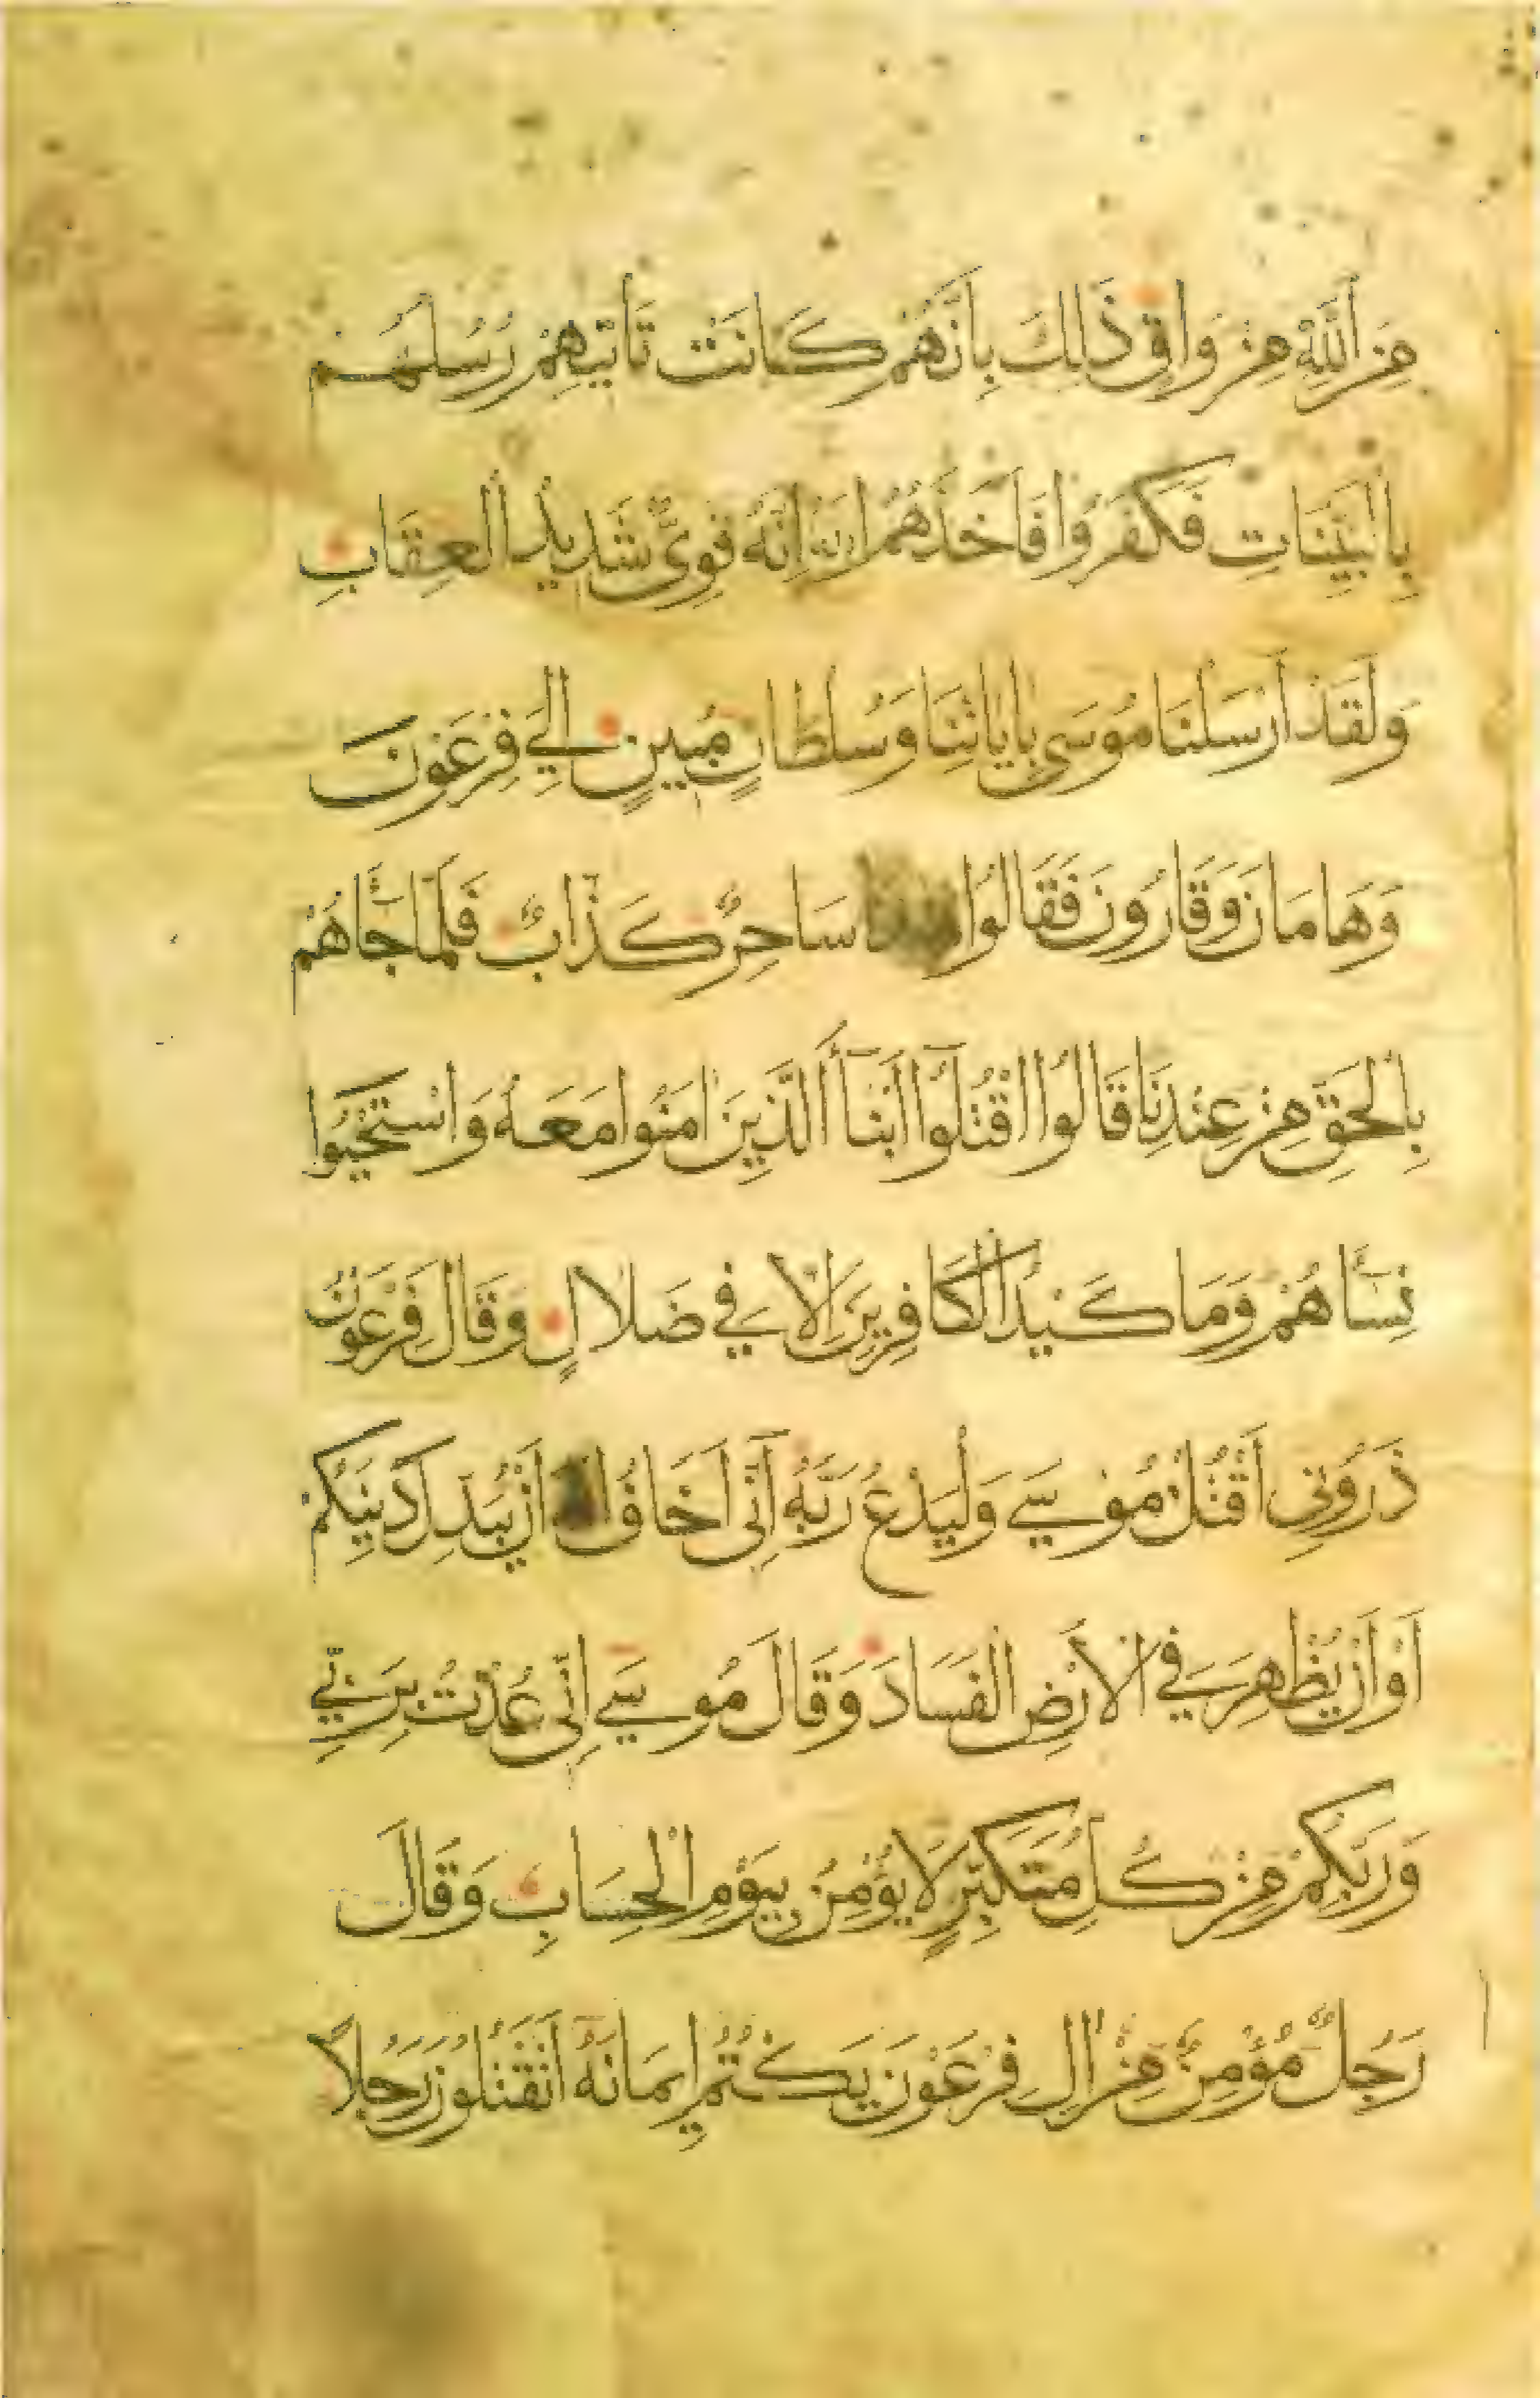 مِنَ اللَّهِ مِنْ وَاقٍ ذَلِكَ بِأَنَّهُمْ كَانَتْ تَأْتِيهِمْ رُسُلُهُمْ
بِالْبَيِّنَاتِ فَكَفَرُوا فَأَخَذَهُمُ اللَّهُ إِنَّهُ قَوِيٌّ شَدِيدُ الْعِقَابِ
وَلَقَدْ أَرْسَلْنَا مُوسَى بِآيَاتِنَا وَسُلْطَانٍ مُبِينٍ إِلَى فِرْعَوْنَ
وَهَامَانَ وَقَارُونَ فَقَالُوا سَاحِرٌ كَذَّابٌ فَلَمَّا جَاهُمْ
بِالْحَقِّ مِنْ عِنْدِنَا قَالُوا اقْتُلُوا أَبْنَأَ الَّذِينَ امَنُوا مَعَهُ وَاسْتَحْيُوا
نِسَاهُمْ وَمَا كَيْدُ الْكَافِرِينَ إِلَّا فِي ضَلَالٍ وَقَالَ فِرْعَوْنُ
ذَرُونِي أَقْتُلْ مُوسَى وَلْيَدْعُ رَبَّهُ إِنِّي أَخَافُ أَنْ يُبَدِّلَ دِينَكُمْ
أَوْ أَنْ يُظْهِرَ فِي الْأَرْضِ الْفَسَادَ وَقَالَ مُوسَى إِنِّي عُذْتُ بِرَبِّي
وَرَبِّكُمْ مِنْ كُلِّ مُتَكَبِّرٍ لَا يُؤْمِنُ بِيَوْمِ الْحِسَابِ وَقَالَ
رَجُلٌ مُؤْمِنٌ مِنْ الِ فِرْعَوْنَ يَكْتُمُ إِيمَانَهُ أَتَقْتُلُونَ رَجُلًا